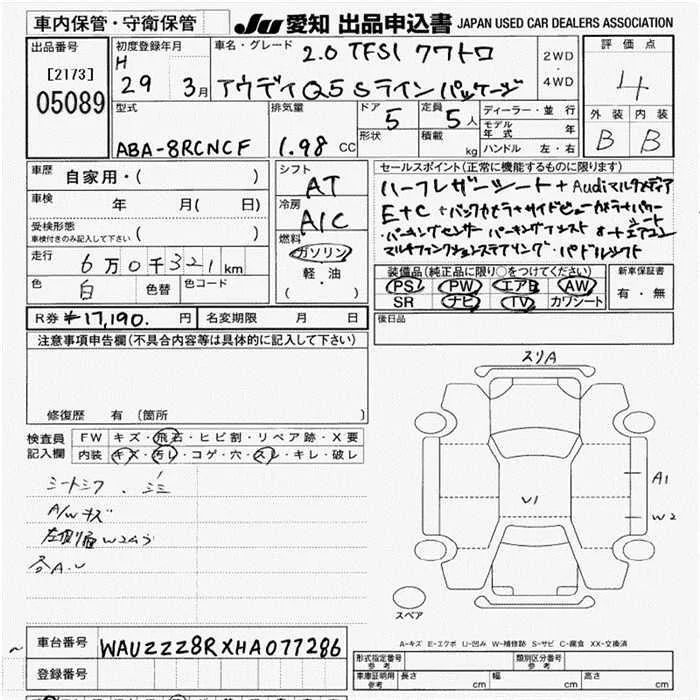 車内保管・守衛保管
JU 愛知 出品申込書 JAPAN USED CAR DEALERS ASSOCIATION
出品番号
[2173]
05089
初度登録年月
H 29 3月
車名・グレード
2.0 TFSI クワトロ
アウディ Q5 Sライン パッケージ
2WD
・
4WD
評価点
4
外装 内装
B B
型式
ABA-8RCNCF
排気量
1.98 CC
ドア 5
形状
定員 5人
積載 kg
ディーラー・並行
モデル年式 年
ハンドル 左・右
車歴 自家用・( )
車検 年 月( 日)
受検形態
車検付きのみ記入して下さい ( )
走行 6万0千321km
色 白 色替 色コード
シフト
AT
冷房
A/C
燃料
ガソリン
・
軽・油
( )
セールスポイント(正常に機能するものに限ります)
ハーフレザーシート + Audiマルチメディア
ETC + バックカメラ + サイドビューカメラ + パワーシート
パーキングセンサー パーキングアシスト オートエアコン
マルチファンクションステアリング・パドルシフト
装備品(純正品に限り○をつけてください)
PS PW エアB AW
SR ナビ TV カワシート
新車保証書
有・無
R券 ¥17,190. 円 名変期限 月 日
後日品
注意事項申告欄(不具合内容等は具体的に記入して下さい)
修復歴 有 (箇所 )
検査員記入欄
FW キズ・飛石・ヒビ割・リペア跡・X要
内装 キズ・汚レ・コゲ・穴・スレ・キレ・破レ
シートシワ
A/Wキズ
各A.U
スリA
A1
W2
U1
スペア
A-キズ E-エクボ U-凹み W-補修跡 S-サビ C-腐食 XX-交換済
車台番号 WAUZZZ8RXHA077286
登録番号
形式指定番号 参考
類別区分番号 参考
車庫証明用 参考 長さ cm 幅 cm 高さ cm